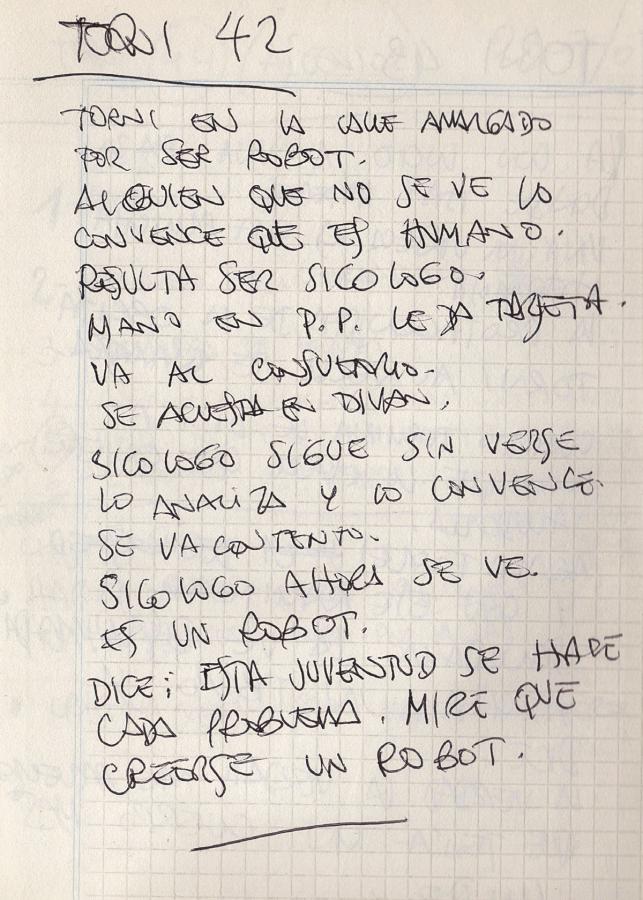 TORNI 42
TORNI EN LA CALLE AMARGADO
POR SER ROBOT.
ALGUIEN QUE NO SE VE LO
CONVENCE QUE ES HUMANO.
RESULTA SER SICOLOGO.
MANO EN P.P. LE DA TARJETA.
VA AL CONSULTORIO.
SE ACUESTA EN DIVAN,
SICOLOGO SIGUE SIN VERSE
LO ANALIZA Y LO CONVENCE.
SE VA CONTENTO.
SICOLOGO AHORA SE VE.
ES UN ROBOT.
DICE: ESTA JUVENTUD SE HACE
CADA PROBLEMA. MIRE QUE
CREERSE UN ROBOT.